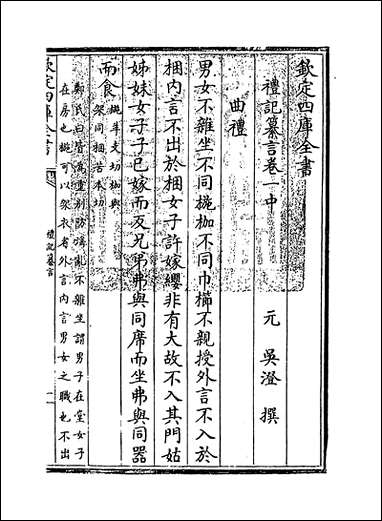 欽定四庫全書
禮記纂言卷一中
元 吳澄 撰
曲禮
男女不雜坐不同椸枷不同巾櫛不親授外言不入於
梱內言不出於梱女子許嫁纓非有大故不入其門姑
姊妹女子子已嫁而反兄弟弗與同席而坐弗與同器
而食
椸羊支切枷與
架同梱苦本切
鄭氏曰皆為重別防淫亂不雜坐謂男子在堂女子
在房也椸可以架衣者外言內言男女之職也不出
欽定四庫全書
禮記纂言
一